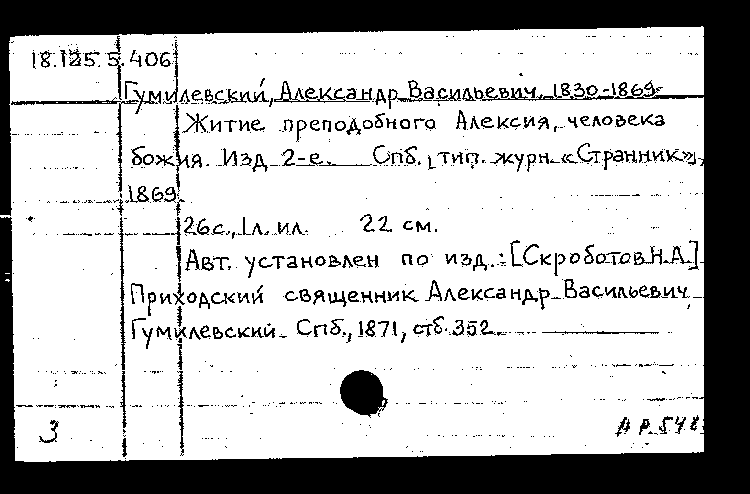 18.125.5.406
Гумилевский, Александр Васильевич, 1830-1869
Житие преподобного Алексия, человека
божия. Изд 2-е. Спб., тип. журн. «Странник»,
1869.
26с., 1л. ил. 22 см.
Авт. установлен по изд.: [Скроботов Н.А.]
Приходский священник Александр Васильевич
Гумилевский. Спб., 1871, стб. 352.
3
АР.548